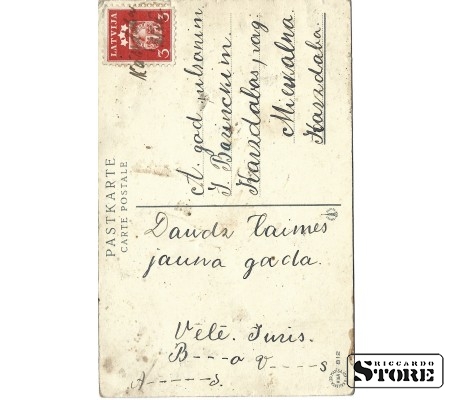 LATVIJA
3 3
PASTKARTE
CARTE POSTALE
A. god. vilsonim
J.
Karzdabas, pag
Mieskalna.
Karzdaba.
Daudz laimes
jauna gada.
Velē. Juris.
B---a V---s
A-----s.
RICCARDO
STORE